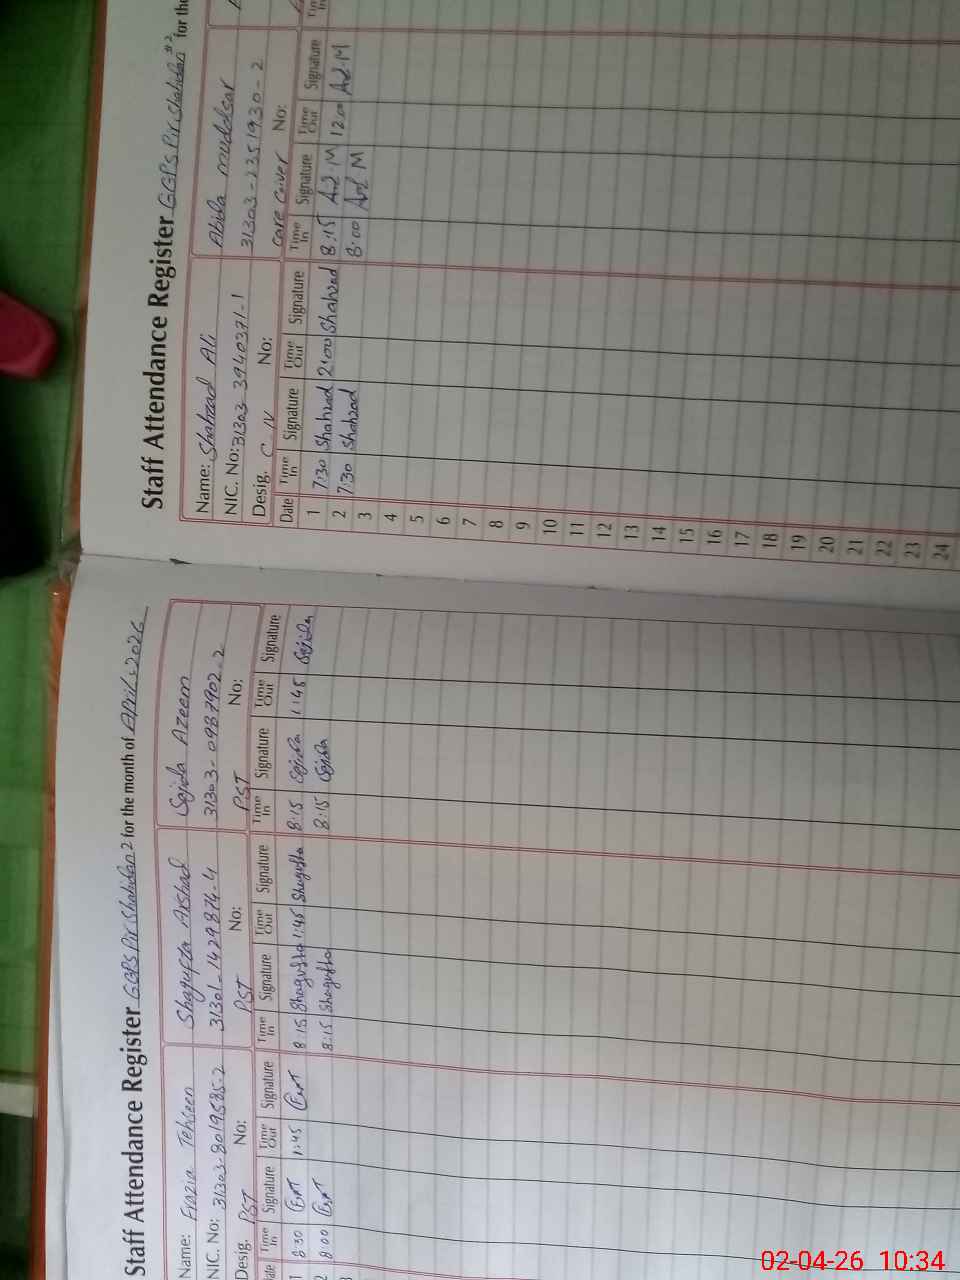 Staff Attendance Register GGPS Pir Shahdan 2 for the month of April, 2026
Name: Frazia Tehseen Shagufta Arshad Sajida Azeem
NIC. No: 31303-8019585-2 31301-1429874-4 31303-0987902-2
Desig. PST No: PST No: PST No:
Date Time In Signature Time Out Signature Time In Signature Time Out Signature Time In Signature Time Out Signature
1 8:30 1:45 8:15 Shagufta 1:45 Shagufta 8:15 Sajida 1:45 Sajida
2 8:00 8:15 Shagufta 8:15 Sajida
3
Staff Attendance Register GGPS Pir Shahdan #2 for the
Name: Shahzad Ali Abida muddsar
NIC. No: 31303 3940371-1 31303-2351930-2
Desig. C. IV No: Care Caiver No:
Date Time In Signature Time Out Signature Time In Signature Time Out Signature Time In
1 7:30 Shahzad 2:00 Shahzad 8:15 Ad M 12.00 Ad M
2 7:30 Shahzad 8:00 Ad M
3
4
5
6
7
8
9
10
11
12
13
14
15
16
17
18
19
20
21
22
23
24
02-04-26 10:34